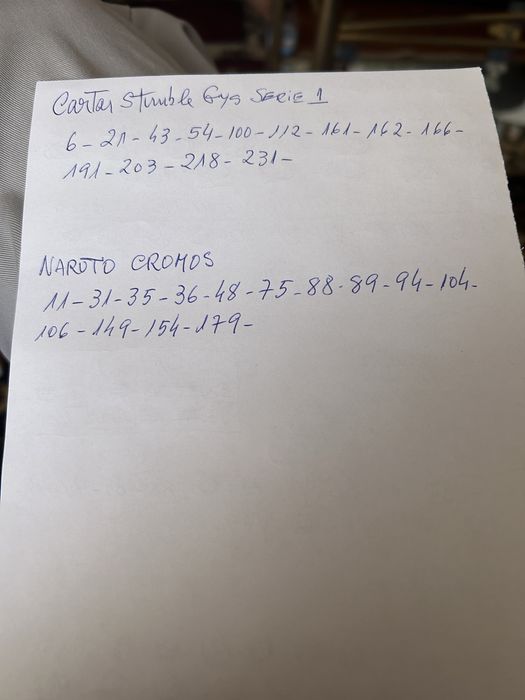 Cartas Stumble Gys SERIE 1
6-21-43-54-100-112-161-162-166-
191-203-218-231-
NARUTO CROMOS
11-31-35-36-48-75-88-89-94-104-
106-149-154-179-